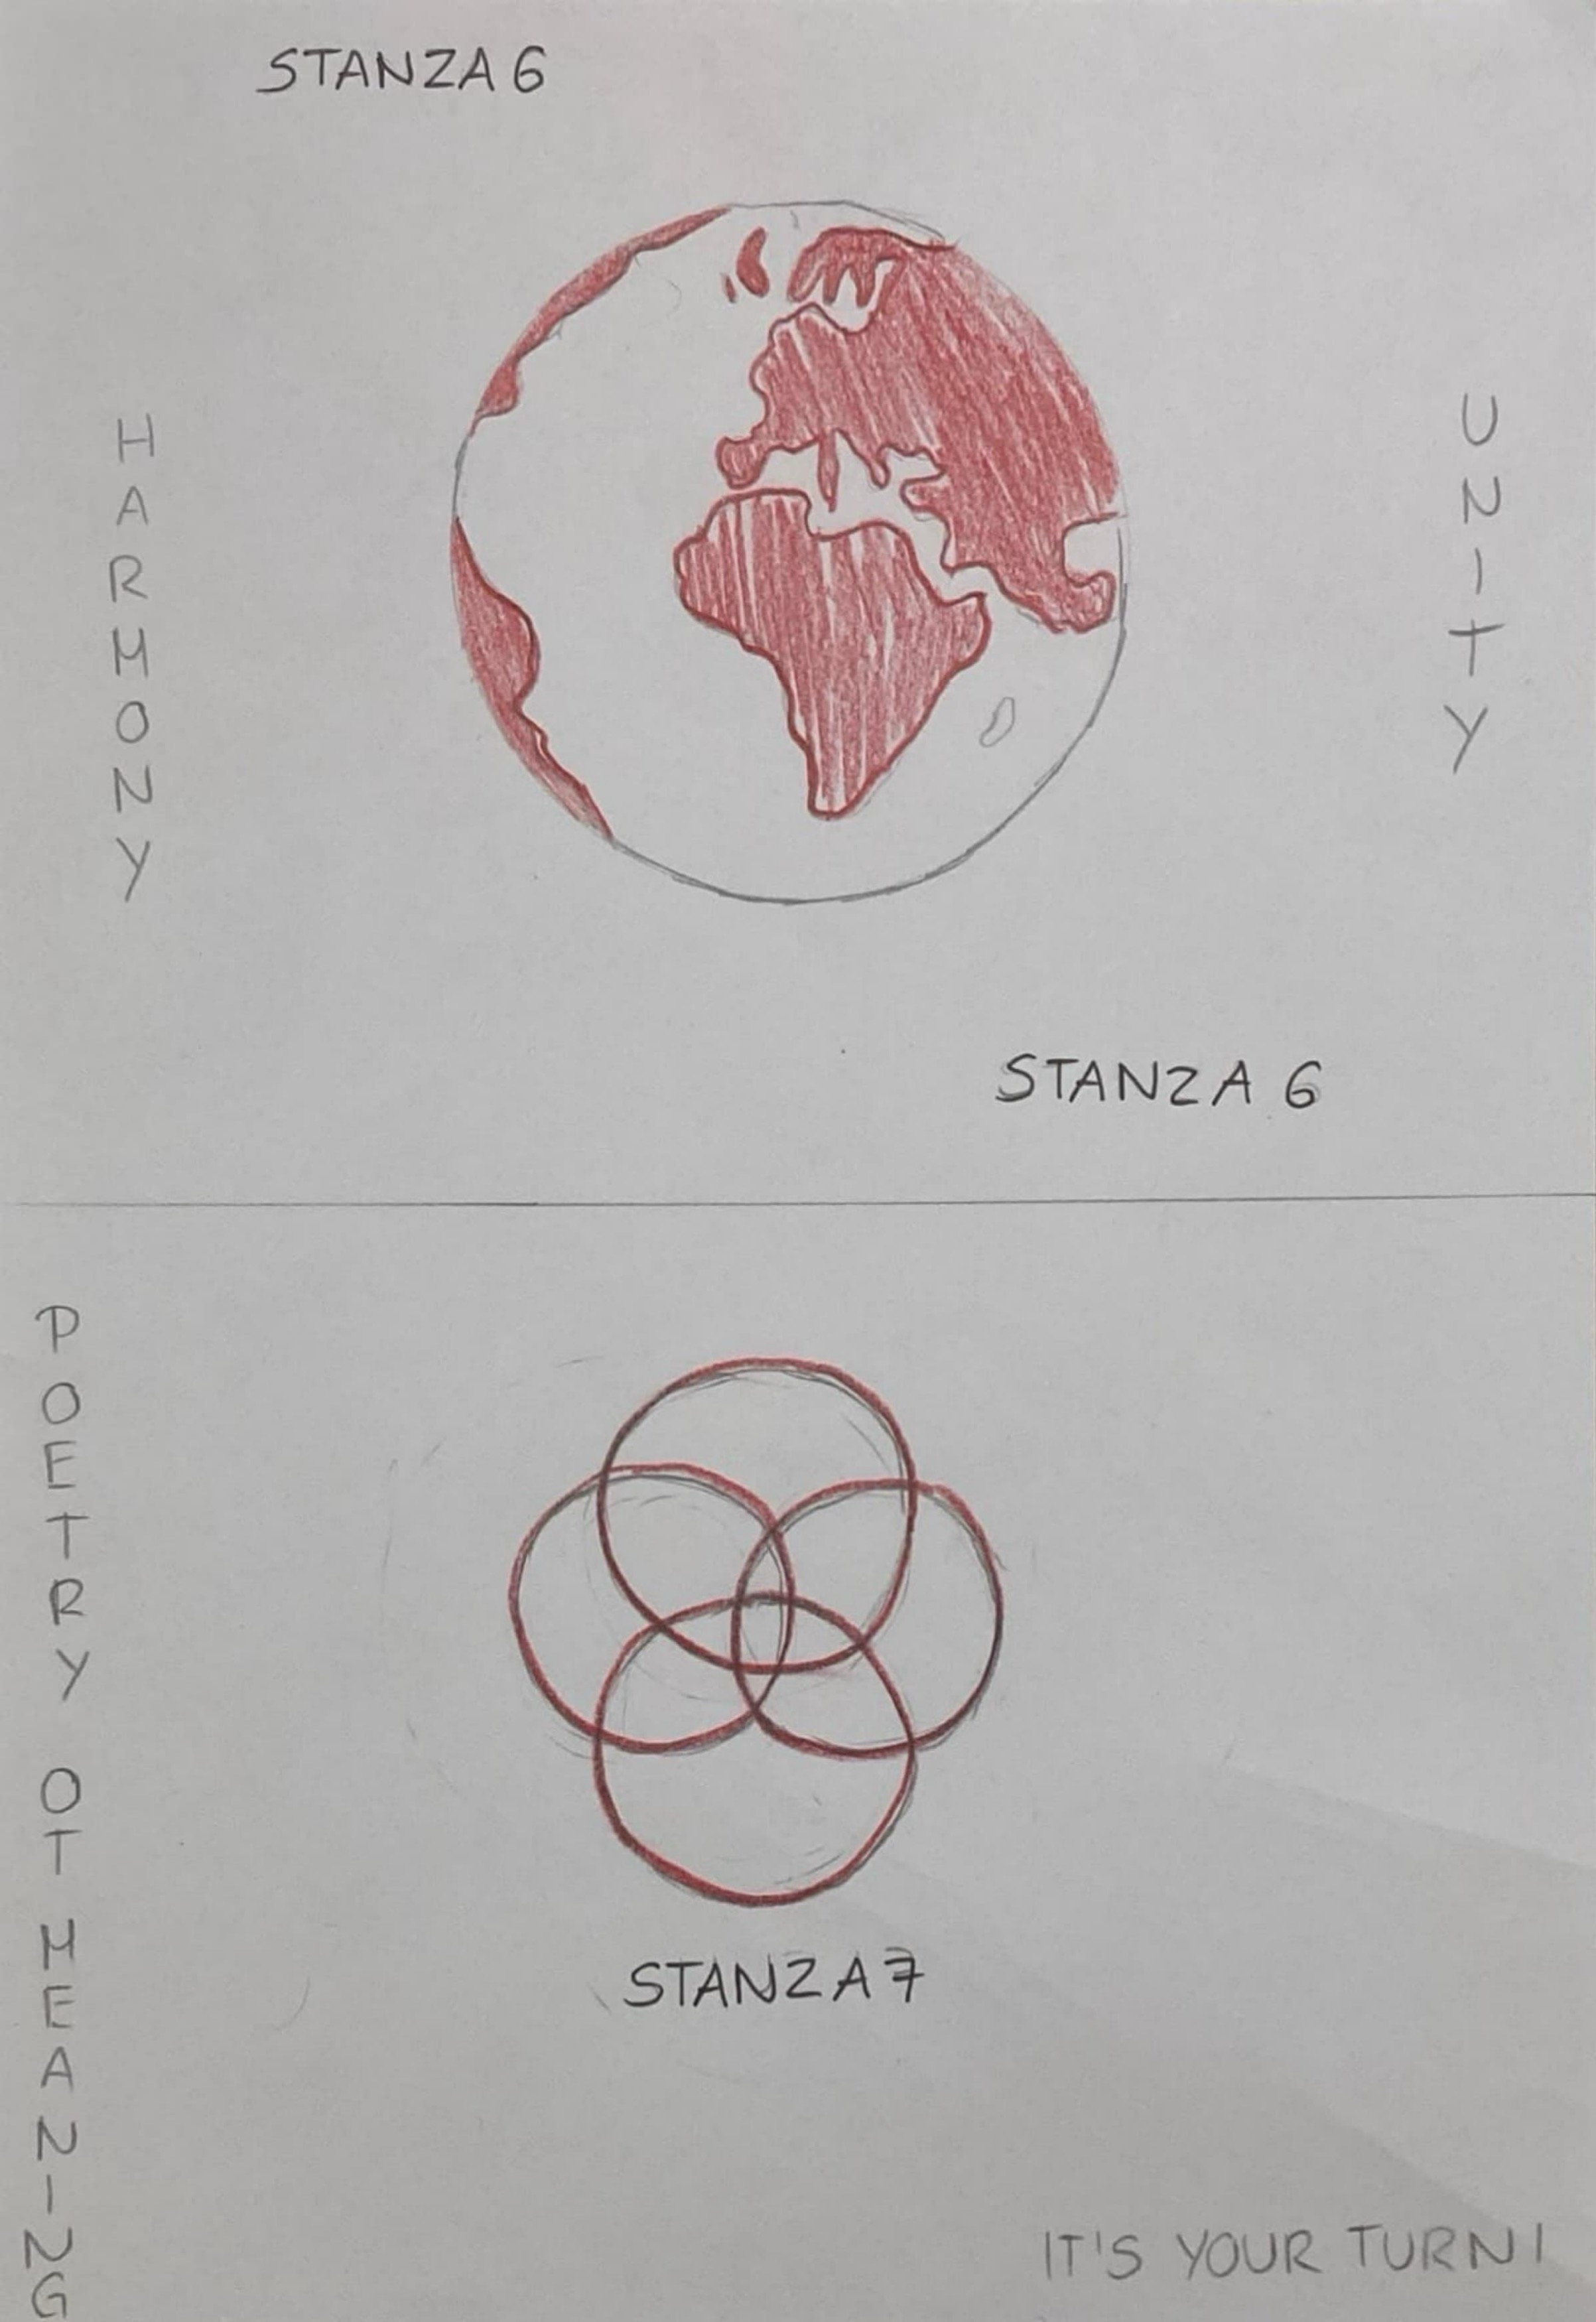 STANZA 6
HARMONY
UNITY
STANZA 6
POETRY OT MEANING
STANZA 7
IT'S YOUR TURN!